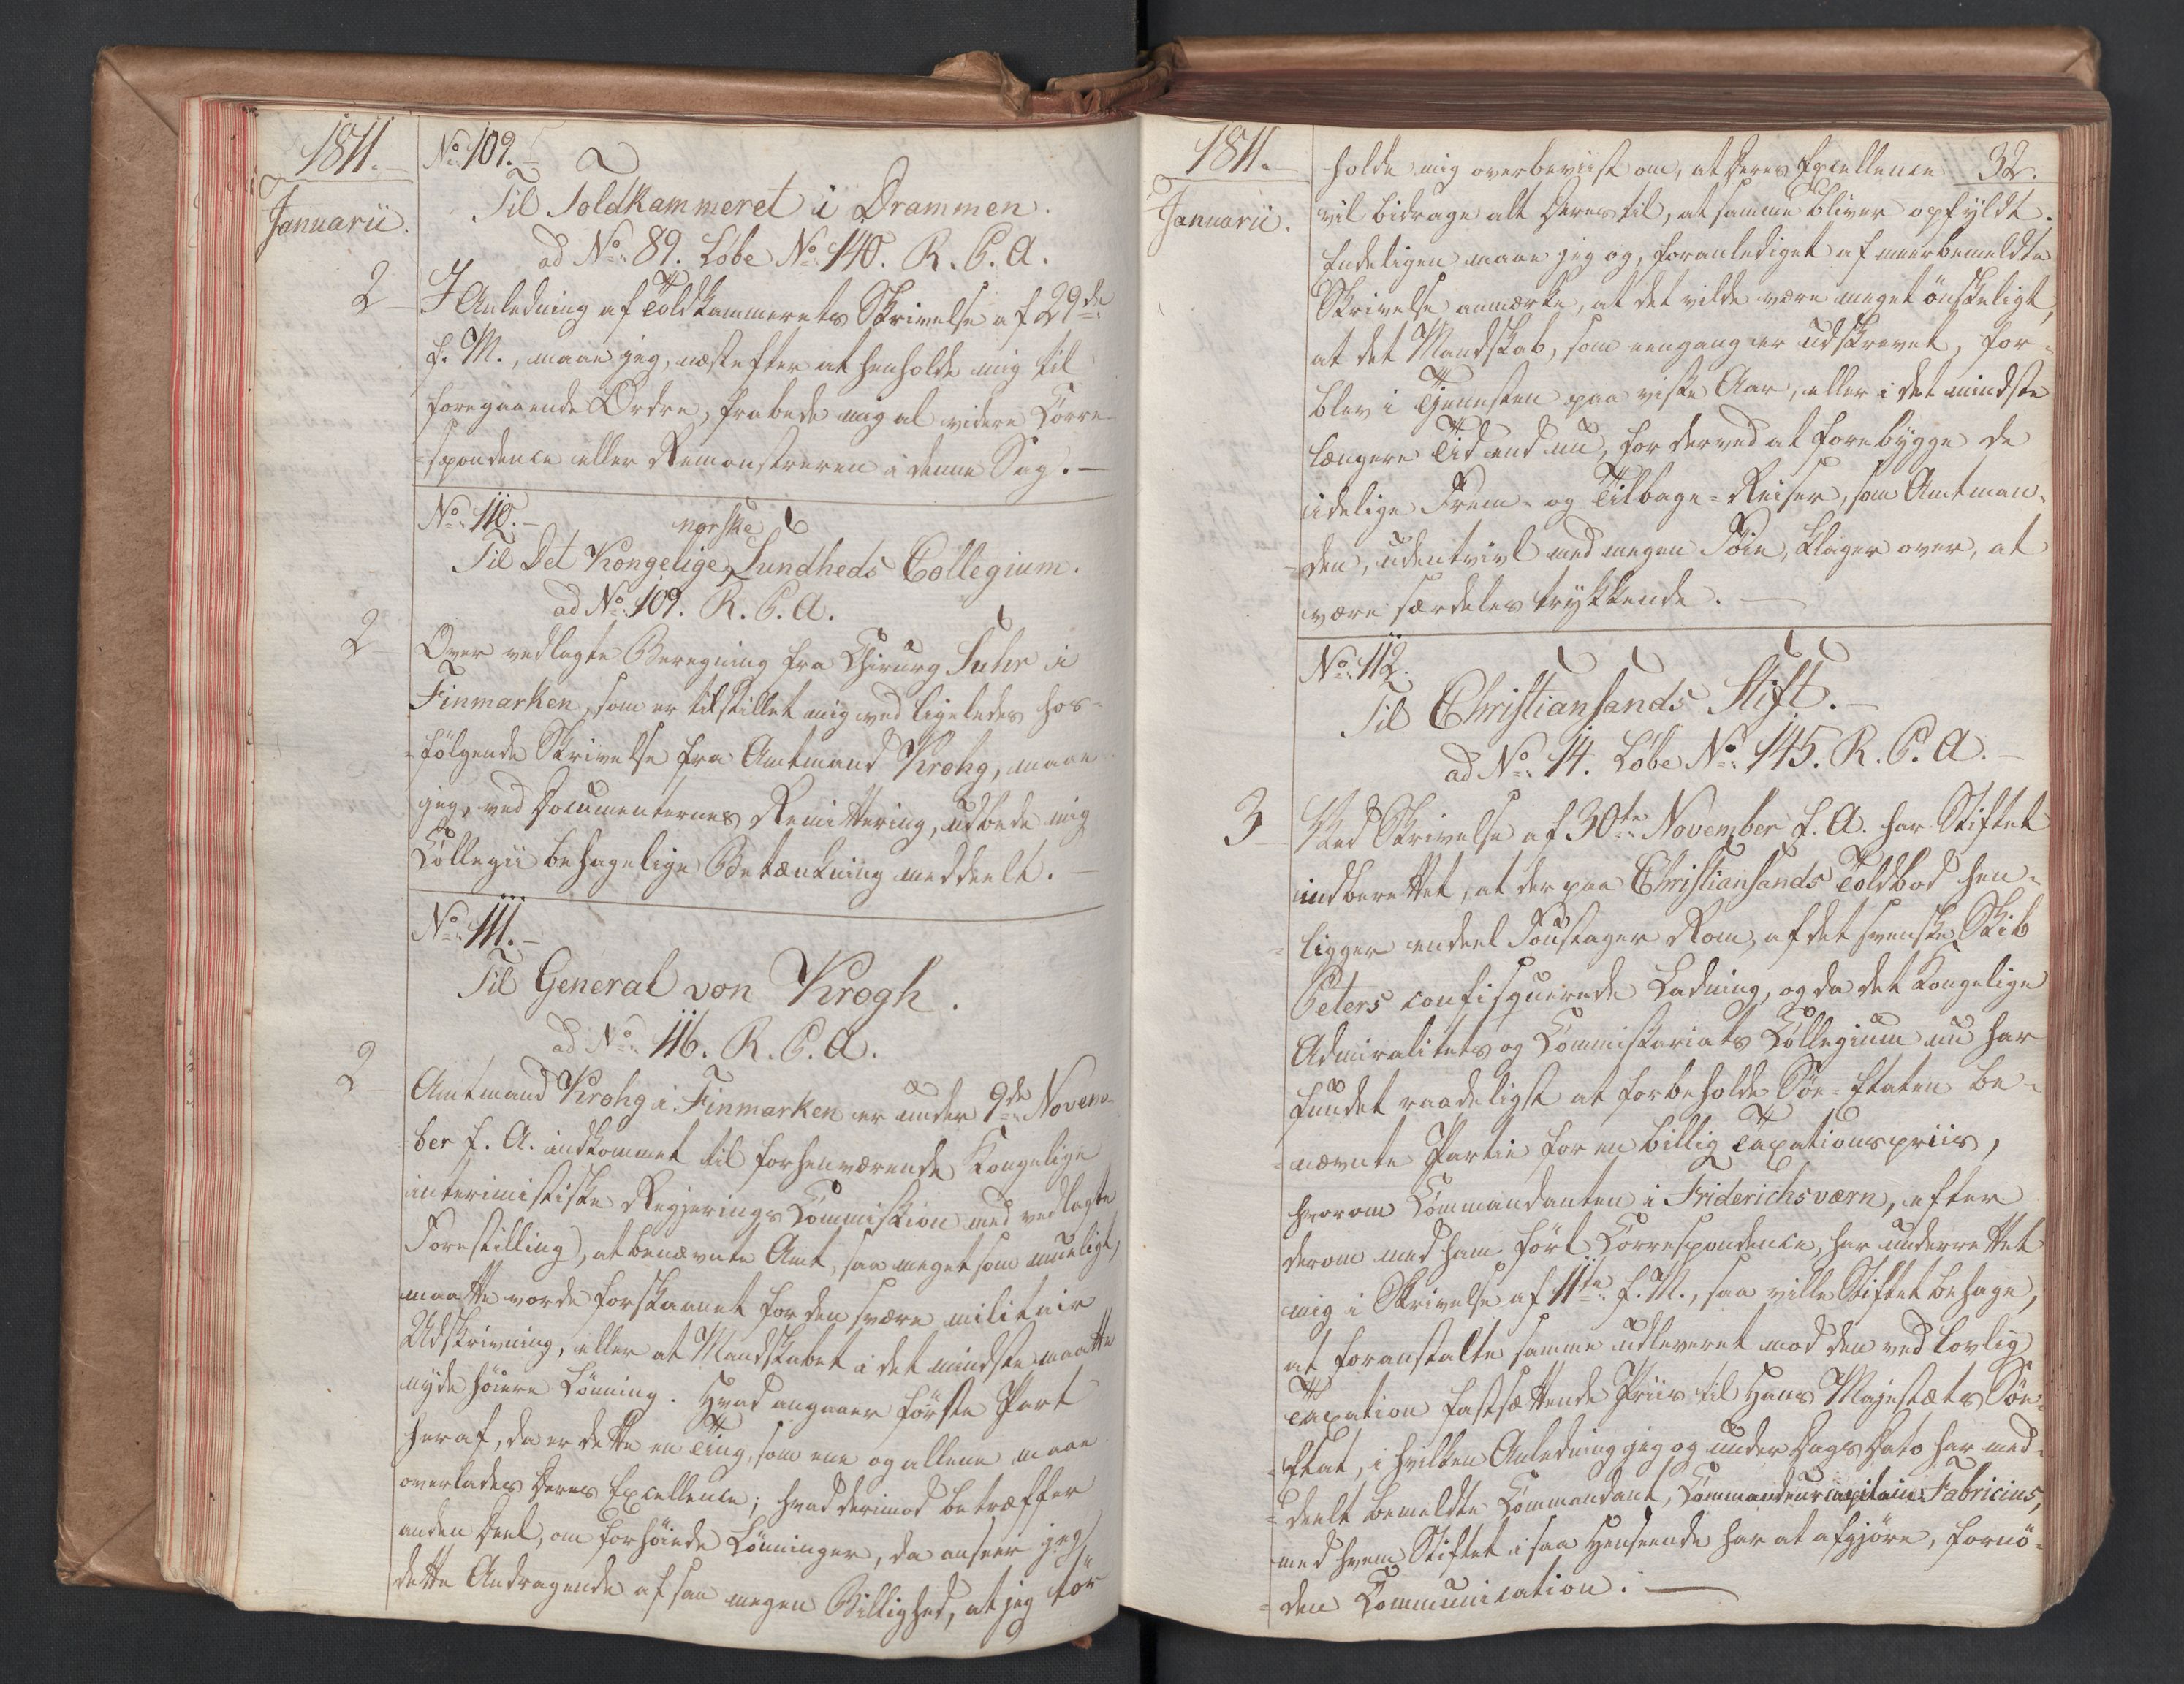 1811.
Januarii.
No. 109.
Til Toldkammeret i Drammen.
ad No. 89. Løbe No. 140. R. P. A.
2 I Anledning af Toldkammerets Skrivelse af 29de
f. M., maae jeg, næst efter at henholde mig til
foregaaende Ordre, frabede mig al videre Corre-
=spondence eller Remonstreren i denne Sag. —
No. 110. —
norske
Til Det Kongelige Sundheds Collegium.
ad No. 109. R. P. A.
2 Over vedlagte Beregning fra Chirurg Suhr i
Finmarken, som er tilstillet mig ved ligeledes hos-
=følgende Skrivelse fra Amtmand Krohg, maae
jeg, ved Documenternes Remittering, udbede mig
Collegii behagelige Betænkning meddeelt. —
No. 111. —
Til General von Krogh.
ad No. 116. R. P. A.
2 Amtmand Krohg i Finmarken er under 9de Novem-
ber f. A. indkommet til forhenværende Kongelige
interimistiske Regjerings Commission med vedlagte
Forestilling, at benævnte Amt, saa meget som mueligt,
maatte vorde forskaanet for den svære militair
Udskrivning, eller at Mandskabet i det mindste maatte
nyde höiere Lönning. Hvad angaaer förste Part
heraf, da er dette en Ting, som ene og allene maae
overlades Deres Excellence; hvad derimod betræffer
anden Deel, om forhöiede Lönninger, da anseer jeg
dette Andragende af saa megen Billighed, at jeg tör
1811.
Januarii.
32.
holde mig overbeviist om, at Deres Excellence
vil bidrage alt Deres til, at samme bliver opfyldt.
Endeligen maae jeg og, foranlediget af meerbemeldte
Skrivelse anmærke, at det vilde være meget önskeligt,
at det Mandskab, som eengang er udskrevet, for-
blev i Tjenesten paa visse Aar, eller i det mindste
længere Tid end nu, for derved at forebygge de
idelige Frem- og Tilbage-Reiser, som Amtman-
=den, udentvivl med megen Föie, klager over, at
være særdeles trykkende. —
No. 112.
Til Christiansands Stift. —
ad No. 14. Løbe No. 145. R. P. A. —
3 Ved Skrivelse af 30te November f. A. har Stiftet
indberettet, at der paa Christiansands Toldbod hen-
=ligger endeel Foustager Rom, af det svenske Skib
Peters confisquerede Ladning, og da det Kongelige
Admiralitets og Commissariats Collegium nu har
fundet raadeligst at forbeholde Söe-Etaten be-
=nævnte Partie for en billig Taxationspriis,
hvorom Commandanten i Friderichsværn, efter
derom med ham fört Correspondence, har underrettet
mig i Skrivelse af 11te f. M., saa ville Stiftet behage,
at foranstalte samme udleveret mod den ved lovlig
Taxation fastsættende Priis til Hans Majestæts Söe-
=Etat, i hvilken Anledning jeg og under Dags Dato har med-
=deelt bemeldte Commandant, Commandeurcapitain Fabricius,
med hvem Stiftet i saa Henseende har at afgjöre, fornö-
=den Communication. —